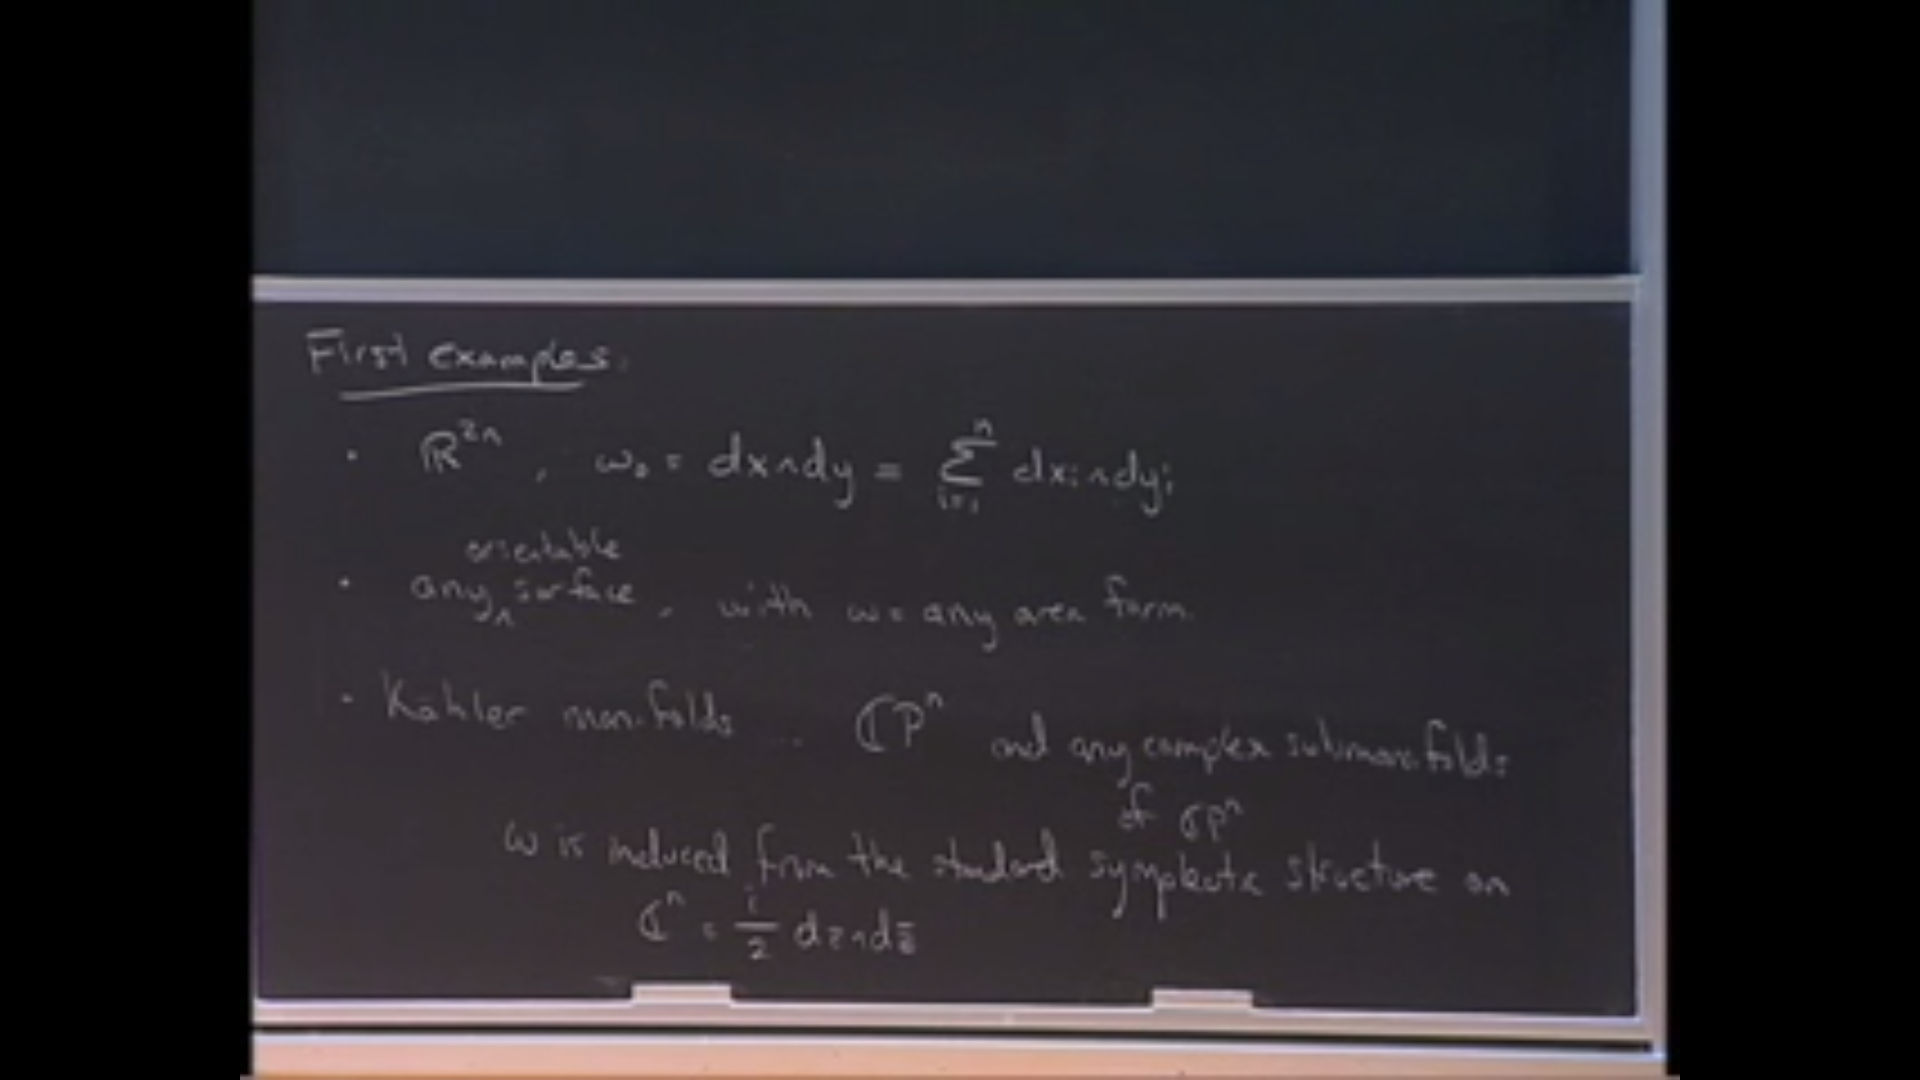 First examples.
• ℝ²ⁿ, ω₀ = dx∧dy = Σⁿᵢ₌₁ dxᵢ∧dyᵢ
orientable
• any ∧ surface, with ω = any area form.
• Kähler manifolds ... ℂPⁿ and any complex submanifolds
of ℂPⁿ
ω is induced from the standard symplectic structure on
ℂⁿ = i/2 dz∧dz̄